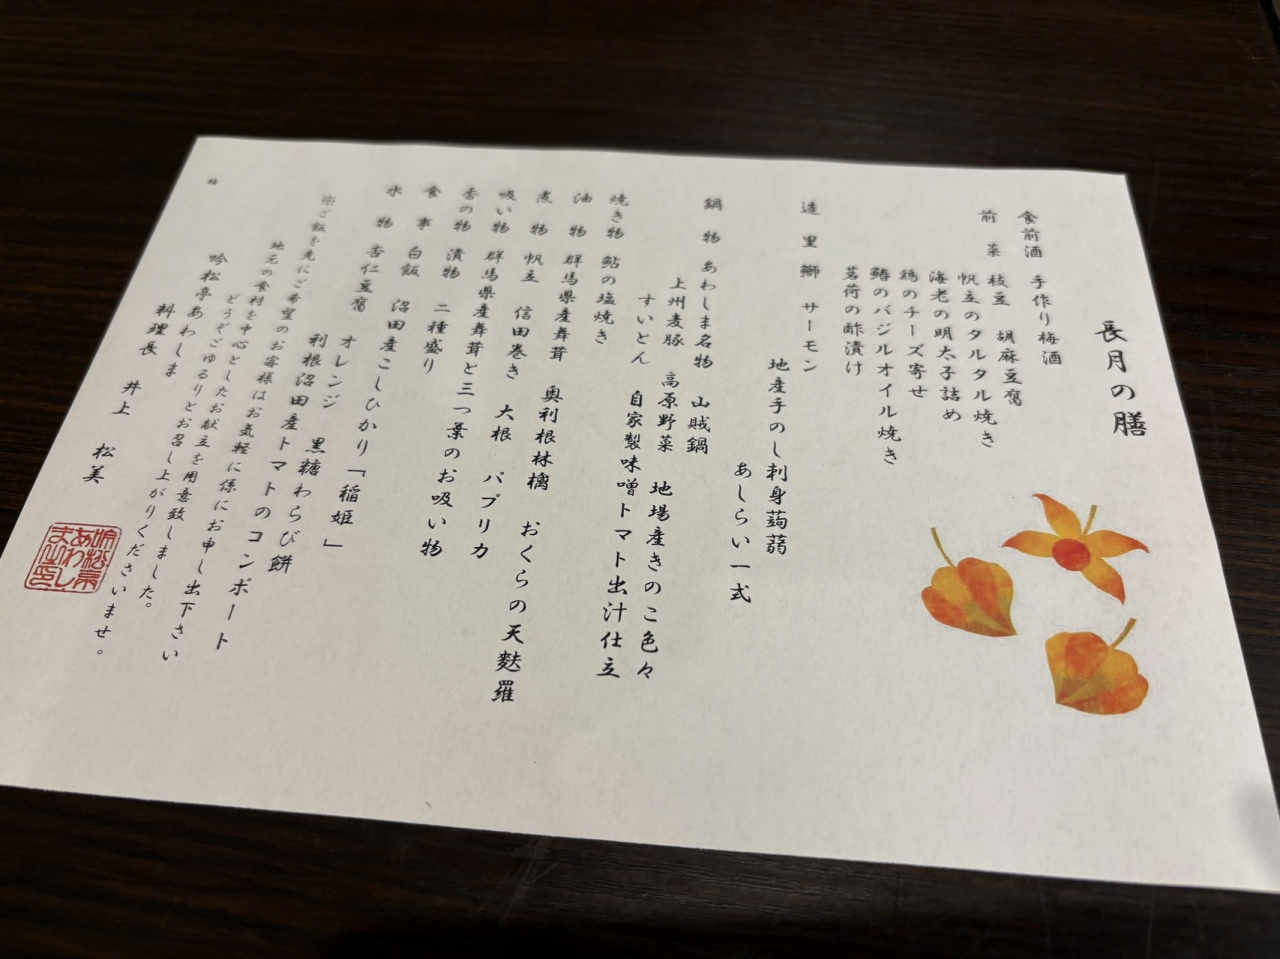 長月の膳
食前酒 手作り梅酒
前 菜 枝豆 胡麻豆腐
帆立のタルタル焼き
海老の明太子詰め
鶏のチーズ寄せ
鰆のバジルオイル焼き
茗荷の酢漬け
造 里 鰤 サーモン
地産手のし刺身蒟蒻
あしらい一式
鍋 物 あわしま名物 山賊鍋
上州麦豚 高原野菜 地場産きのこ色々
すいとん 自家製味噌トマト出汁仕立
焼き物 鮎の塩焼き
油 物 群馬県産舞茸 奥利根林檎 おくらの天麩羅
煮 物 帆立 信田巻き 大根 パプリカ
吸い物 群馬県産舞茸と三つ葉のお吸い物
香の物 漬物 二種盛り
食 事 白飯 沼田産こしひかり「稲姫」
水 物 杏仁豆腐 オレンジ 黒糖わらび餅
利根沼田産トマトのコンポート
※ご飯を先にご希望のお客様はお気軽に係にお申し出下さい
地元の食材を中心としたお献立を用意致しました。
どうぞごゆるりとお召し上がりくださいませ。
吟松亭あわしま
料理長 井上 松美
吟松亭
あわし
ま之印